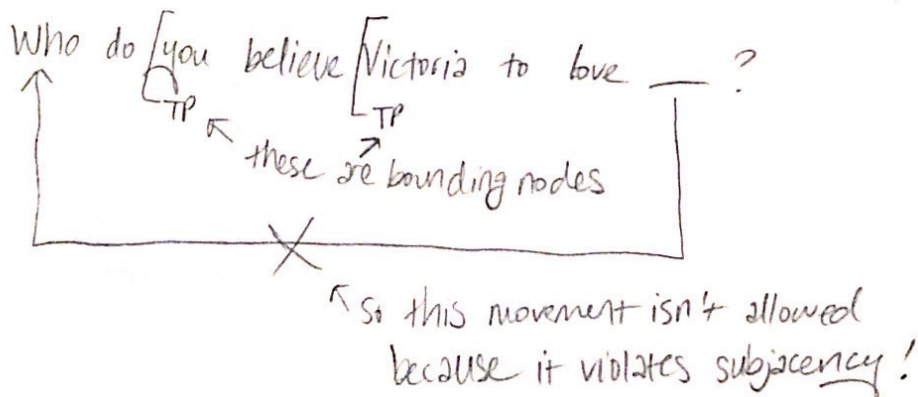 Who do [you believe [Victoria to love __ ?
TP TP
these are bounding nodes
so this movement isn't allowed
because it violates subjacency!